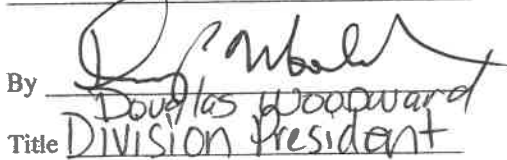 By
Douglas Woodward
Title Division President